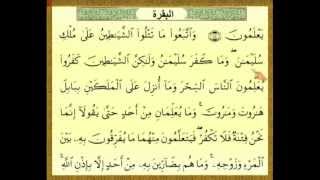 البقرة
يَعْلَمُونَ وَاتَّبَعُوا مَا تَتْلُوا الشَّيَاطِينُ عَلَىٰ مُلْكِ
سُلَيْمَٰنَ وَمَا كَفَرَ سُلَيْمَٰنُ وَلَٰكِنَّ الشَّيَٰطِينَ كَفَرُوا
يُعَلِّمُونَ النَّاسَ السِّحْرَ وَمَا أُنزِلَ عَلَى الْمَلَكَيْنِ بِبَابِلَ
هَٰرُوتَ وَمَٰرُوتَ وَمَا يُعَلِّمَانِ مِنْ أَحَدٍ حَتَّىٰ يَقُولَا إِنَّمَا
نَحْنُ فِتْنَةٌ فَلَا تَكْفُرْ فَيَتَعَلَّمُونَ مِنْهُمَا مَا يُفَرِّقُونَ بِهِ بَيْنَ
الْمَرْءِ وَزَوْجِهِ وَمَا هُم بِضَارِّينَ بِهِ مِنْ أَحَدٍ إِلَّا بِإِذْنِ اللَّهِ